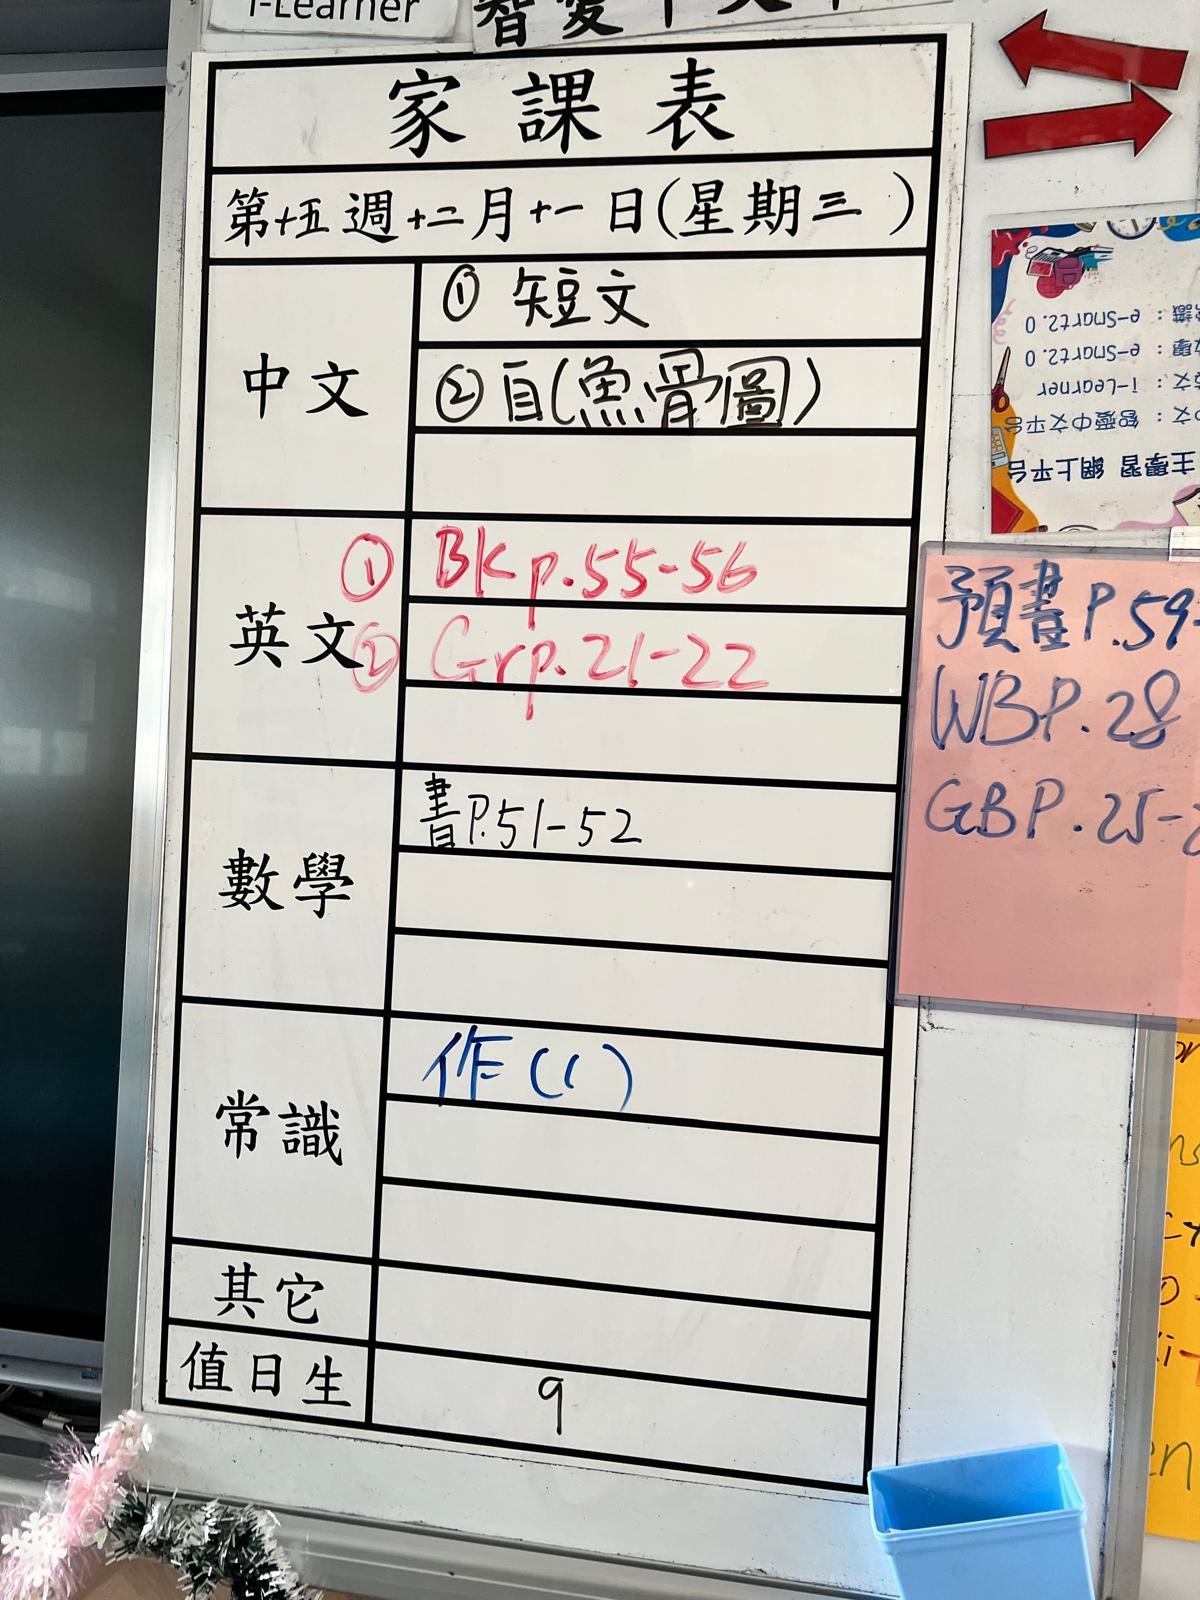 i-Learner
家課表
第十五週十二月十一日(星期三)
中文
① 短文
② 自(魚骨圖)
英文
① BK p.55-56
② Gr p.21-22
數學
書P.51-52
常識
作(1)
其它
值日生
9
e-Smart2.0
e-Smart2.0
i-Learner
智愛中文平台
主學習 網上平台
預書P.59-
WBP.28
GBP.25-